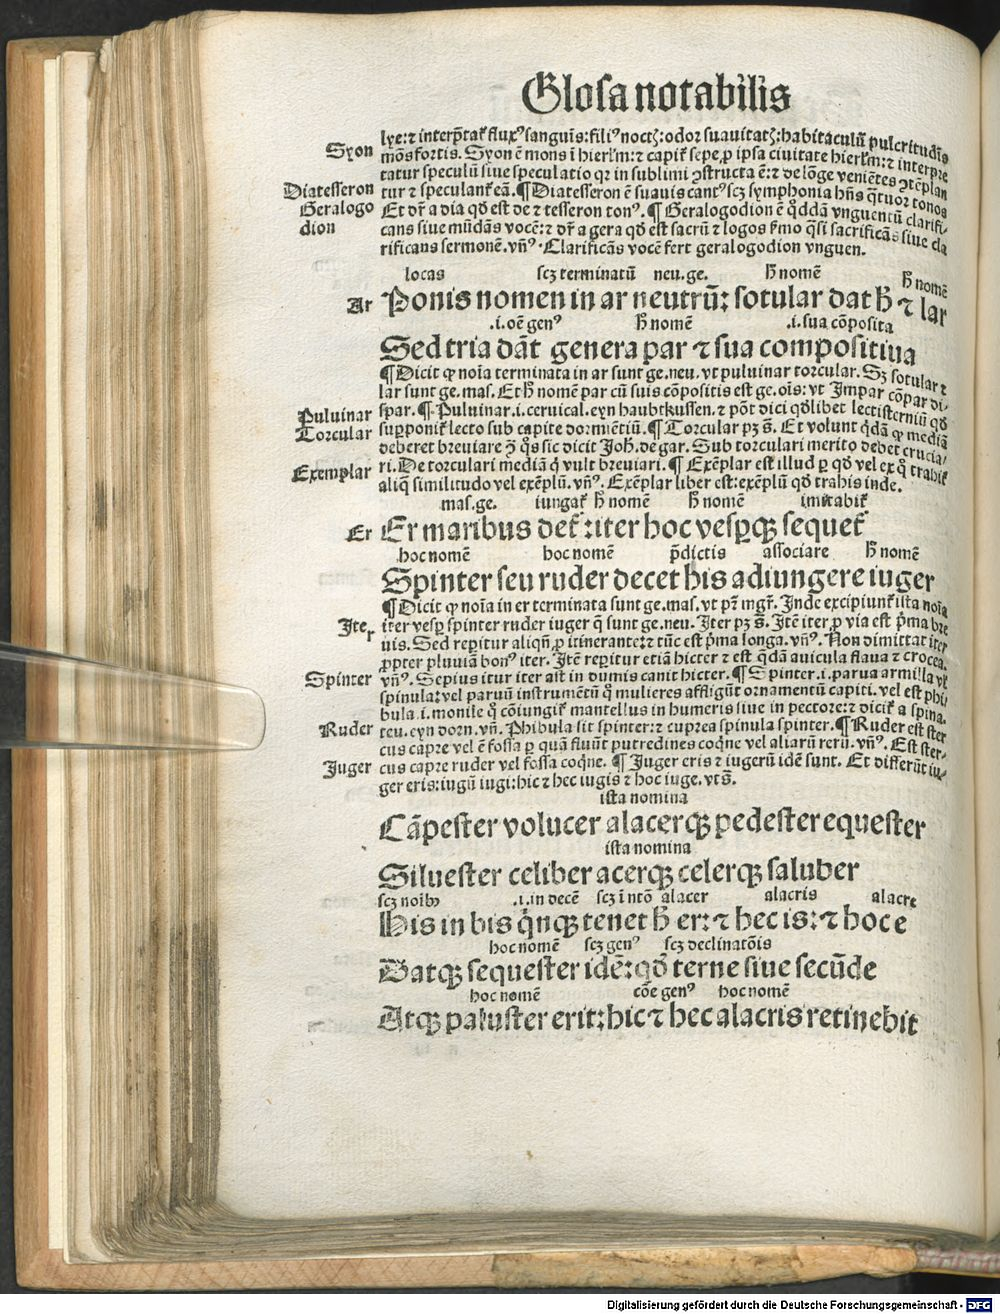 Glosa notabilis
lye: ⁊ interp̃tat̃ fluxꝰ sanguis: filiꝰ noctꝭ: odor suauitatꝭ: habitaculũ pulcritudĩs
Syon mõs fortis. Syon ẽ mons ĩ hierl̃m: ⁊ capit̃ sepe ꝓ ipsa ciuitate hierl̃m: ⁊ interpre
tatur speculũ siue speculatio qꝛ in sublimi ꝯstructa ẽ: ⁊ de lõge veniẽtes ꝯtẽplan
Diatesseron tur ⁊ speculant̃ eã. ¶ Diatesseron ẽ suauis cantꝰ scꝫ symphonia hñs q̃tuor tonos
Geralogo Et dr̃ a dia qd̃ est de ⁊ tesseron tonꝰ. ¶ Geralogodion ẽ q̃ddã vnguentũ clarifi-
dion cans siue mũdãs vocẽ: ⁊ dr̃ a gera qd̃ est sacrũ ⁊ logos sermo q̃si sacrificãs siue cla
rificans sermonẽ. vñꝰ. Clarificãs vocẽ fert geralogodion vnguen.
locas scꝫ terminatũ neu. ge. h̃ nomẽ h̃ nomẽ
Ar Ponis nomen in ar neutrũ: sotular dat h̃ ⁊ lar
.i. oẽ genꝰ h̃ nomẽ .i. sua cõposita
Sed tria dãt genera par ⁊ sua compositiua
¶ Dicit ꝙ noĩa terminata in ar sunt ge. neu. vt puluinar torcular. Sꝫ sotular ⁊
lar sunt ge. mas. Et h̃ nomẽ par cũ suis cõpositis est ge. oĩs: vt Impar cõpar di-
Puluinar spar. ¶ Puluinar .i. ceruical. eyn haubtkussen. ⁊ põt dici qd̃libet lectisterniũ qd̃
Torcular supponit̃ lecto sub capite dormẽtiũ. ¶ Torcular pꝫ s̃. Et volunt q̃dã ꝙ mediã
deberet breuiare ꝯ̃ q̃s sic dicit Joh. de gar. Sub torculari merito debet crucia-
ri. De torculari mediã q̃ vult breuiari. ¶ Exẽplar est illud ꝑ qd̃ vel ex q̃ trahit̃
Exemplar aliq̃ similitudo vel exẽplũ. vñꝰ. Exẽplar liber est: exẽplũ qd̃ trahis inde.
mas. ge. iungat̃ h̃ nomẽ h̃ nomẽ imitabit̃
Er Er maribus det̃: iter hoc vesꝑqꝫ sequet̃
hoc nomẽ hoc nomẽ p̃dictis associare h̃ nomẽ
Spinter seu ruder decet his adiungere iuger
¶ Dicit ꝙ noĩa in er terminata sunt ge. mas. vt pr̃ mgr̃. Inde excipiunt̃ ista noĩa
Iter iter vesꝑ spinter ruder iuger q̃ sunt ge. neu. Iter pꝫ s̃. Itẽ iter ꝓ via est p̃ma bre
uis. Sed reꝑitur aliqñ ꝓ itinerante: ⁊ tũc est p̃ma longa. vñꝰ. Non dimittat iter
ꝓpter pluuiã bonꝰ iter. Itẽ reꝑitur etiã hicter ⁊ est q̃dã auicula flaua ⁊ crocea.
Spinter vñꝰ. Sepius itur iter ast in dumis canit hicter. ¶ Spinter .i. parua armilla vel
spinula: vel paruũ instrumẽtũ q̃ mulieres affligũt ornamentũ capiti. vel est phi-
bula .i. monile q̃ cõiungit̃ mantellus in humeris siue in pectore: ⁊ dicit̃ a spina.
Ruder teu. eyn dorn. vñ. Phibula sit spinter: ⁊ cuprea spinula spinter. ¶ Ruder est ster
cus capre vel ẽ fossa ꝑ quã fluũt putredines coqñe vel aliarũ rerũ. vñꝰ. Est ster-
Juger cus capre ruder vel fossa coqñe. ¶ Juger eris ⁊ iugerũ idẽ sunt. Et differũt iu-
ger eris: iugũ iugi: hic ⁊ hec iugis ⁊ hoc iuge. vt s̃.
ista nomina
Cãpester volucer alacerqꝫ pedester equester
ista nomina
Siluester celiber acerqꝫ celerqꝫ saluber
scꝫ noĩbꝫ .i. in decẽ scꝫ ĩ ntõ alacer alacris alacre
His in bis q̃nqꝫ tenet h̃ er: ⁊ hec is: ⁊ hoc e
hoc nomẽ scꝫ genꝰ scꝫ declinatõis
Datqꝫ sequester idẽ: qd̃ terne siue secũde
hoc nomẽ cõe genꝰ hoc nomẽ
Atqꝫ paluster erit: hic ⁊ hec alacris retinebit
Digitalisierung gefördert durch die Deutsche Forschungsgemeinschaft - DFG